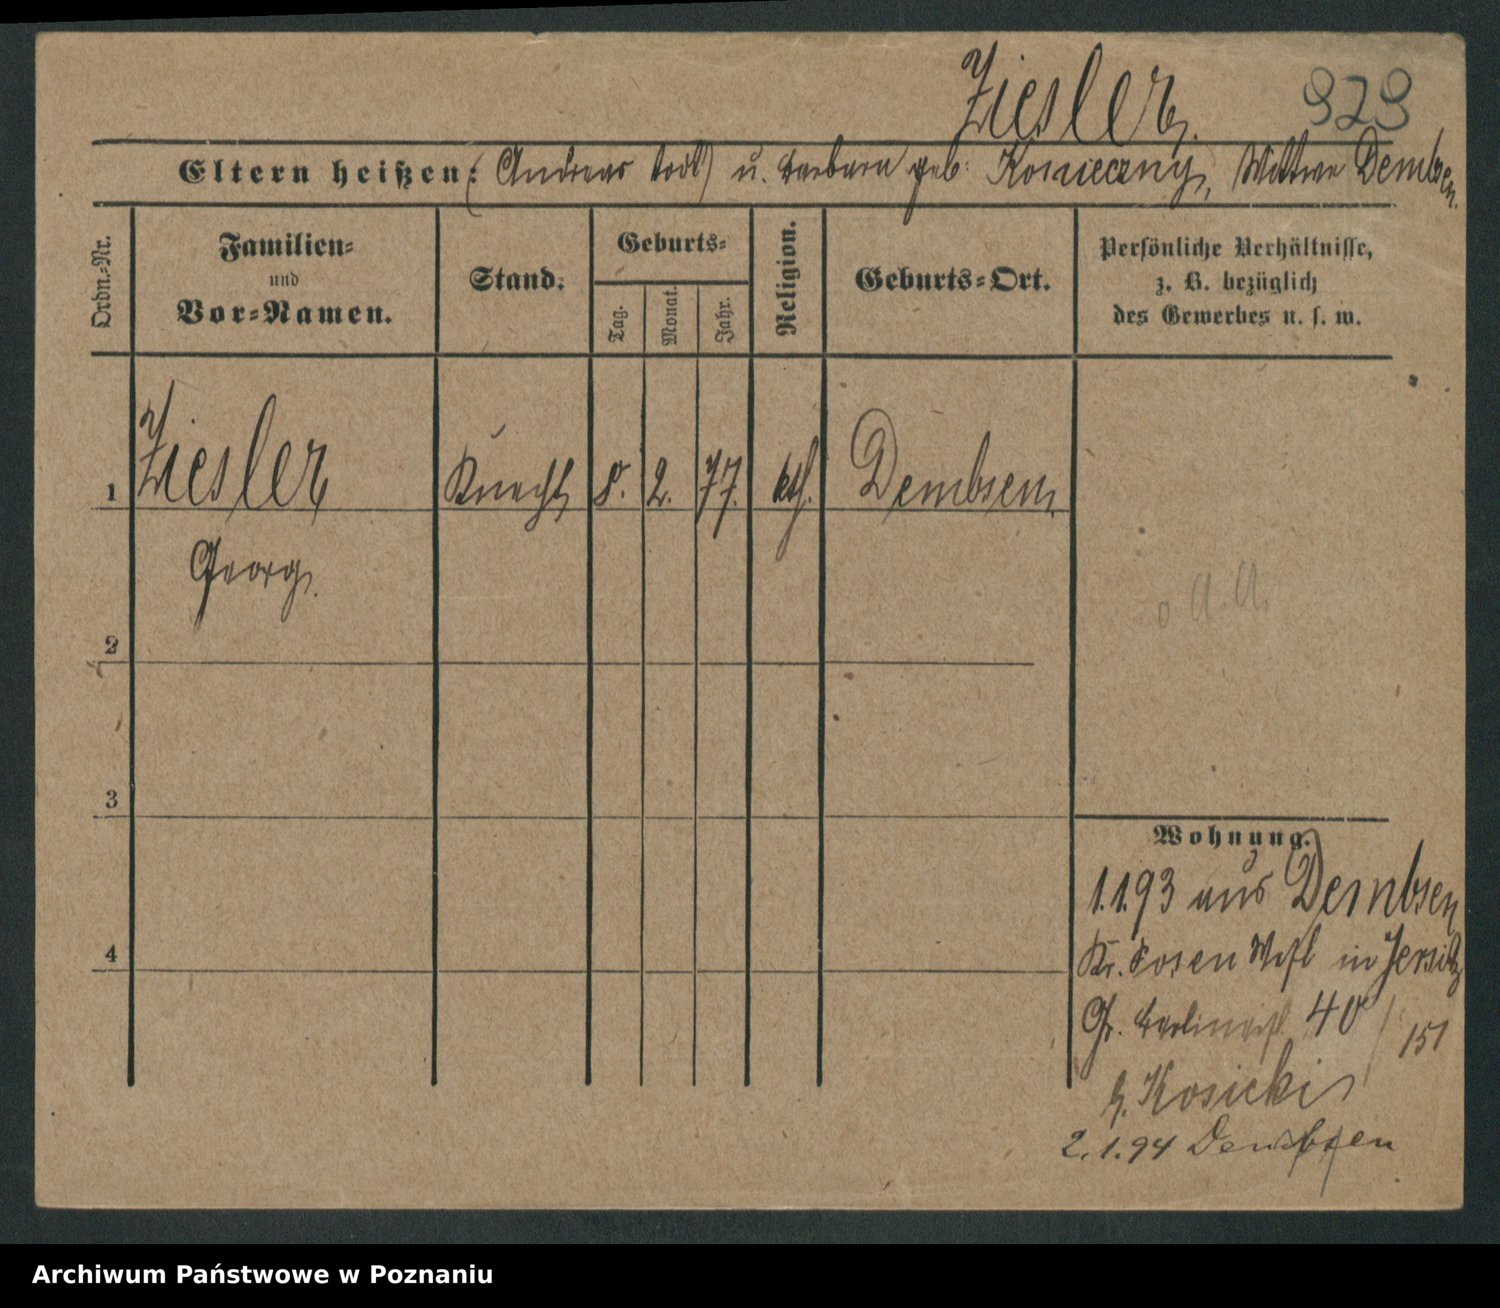 Ziesler. 929
Eltern heißen: (Andreas todt) u. Barbara geb: Konieczny, Wittwe Dembsen.
Ordn.-Nr.
Familien- und Vor-Namen.
Stand.
Geburts-
Tag.
Monat.
Jahr.
Religion.
Geburts-Ort.
Persönliche Verhältnisse,
z. B. bezüglich
des Gewerbes u. s. w.
1 Ziesler Knecht 8. 2. 77. kth. Dembsen
Georg.
2
3
4
Wohnung.
1.1.93 aus Dembsen
Kr. Posen in Jersitz
Gr. Berlinerst. 40 / 151
b. Kosicki
2.1.94 Dembsen
Archiwum Państwowe w Poznaniu